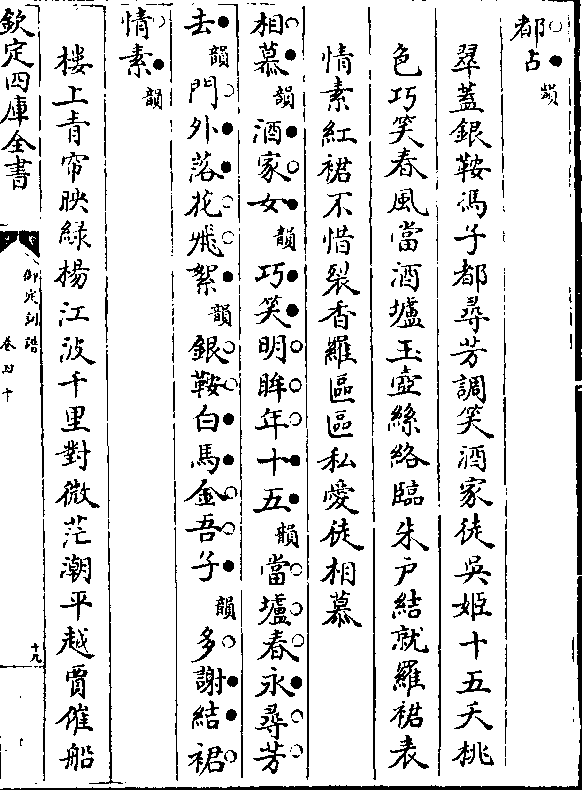 都占韻
翠蓋銀鞍馮子都尋芳調笑酒家徒吳姬十五夭桃
色巧笑春風當酒壚玉壺絲絡臨朱戶結就羅裙表
情素紅裙不惜裂香羅區區私愛徒相慕
相慕韻酒家女韻巧笑明眸年十五韻當壚春永尋芳
去韻門外落花飛絮韻銀鞍白馬金吾子韻多謝結裙
情素韻
樓上青帘映綠楊江波千里對微茫潮平越賈催船
欽定四庫全書
御定詞譜
卷四十
十九